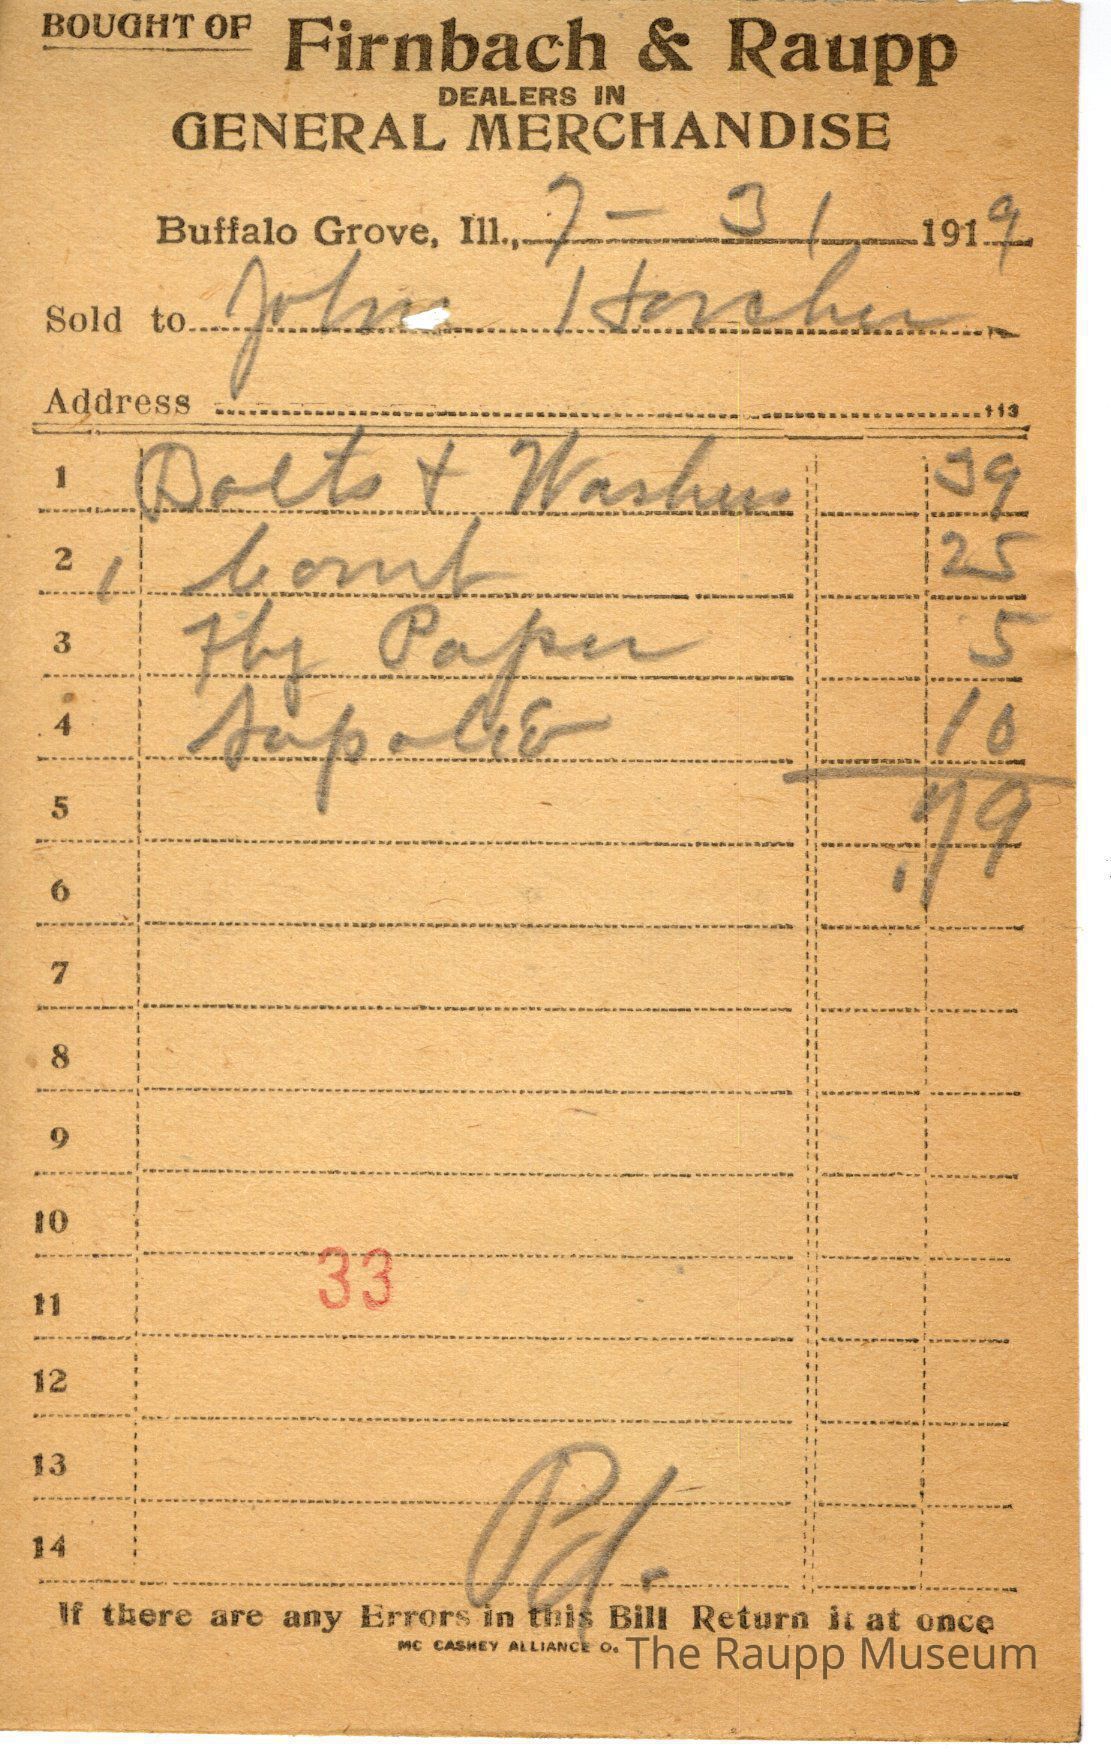 BOUGHT OF Firnbach & Raupp
DEALERS IN
GENERAL MERCHANDISE
Buffalo Grove, Ill., 7 - 31 1919
Sold to John Horcher
Address 113
1 Bolts & Washers 39
2 1 Comb 25
3 Fly Paper 5
4 Sapolio 10
5 .79
6
7
8
9
10
33
11
12
13
14
Pd.
If there are any Errors in this Bill Return it at once
MC CASKEY ALLIANCE O.
The Raupp Museum